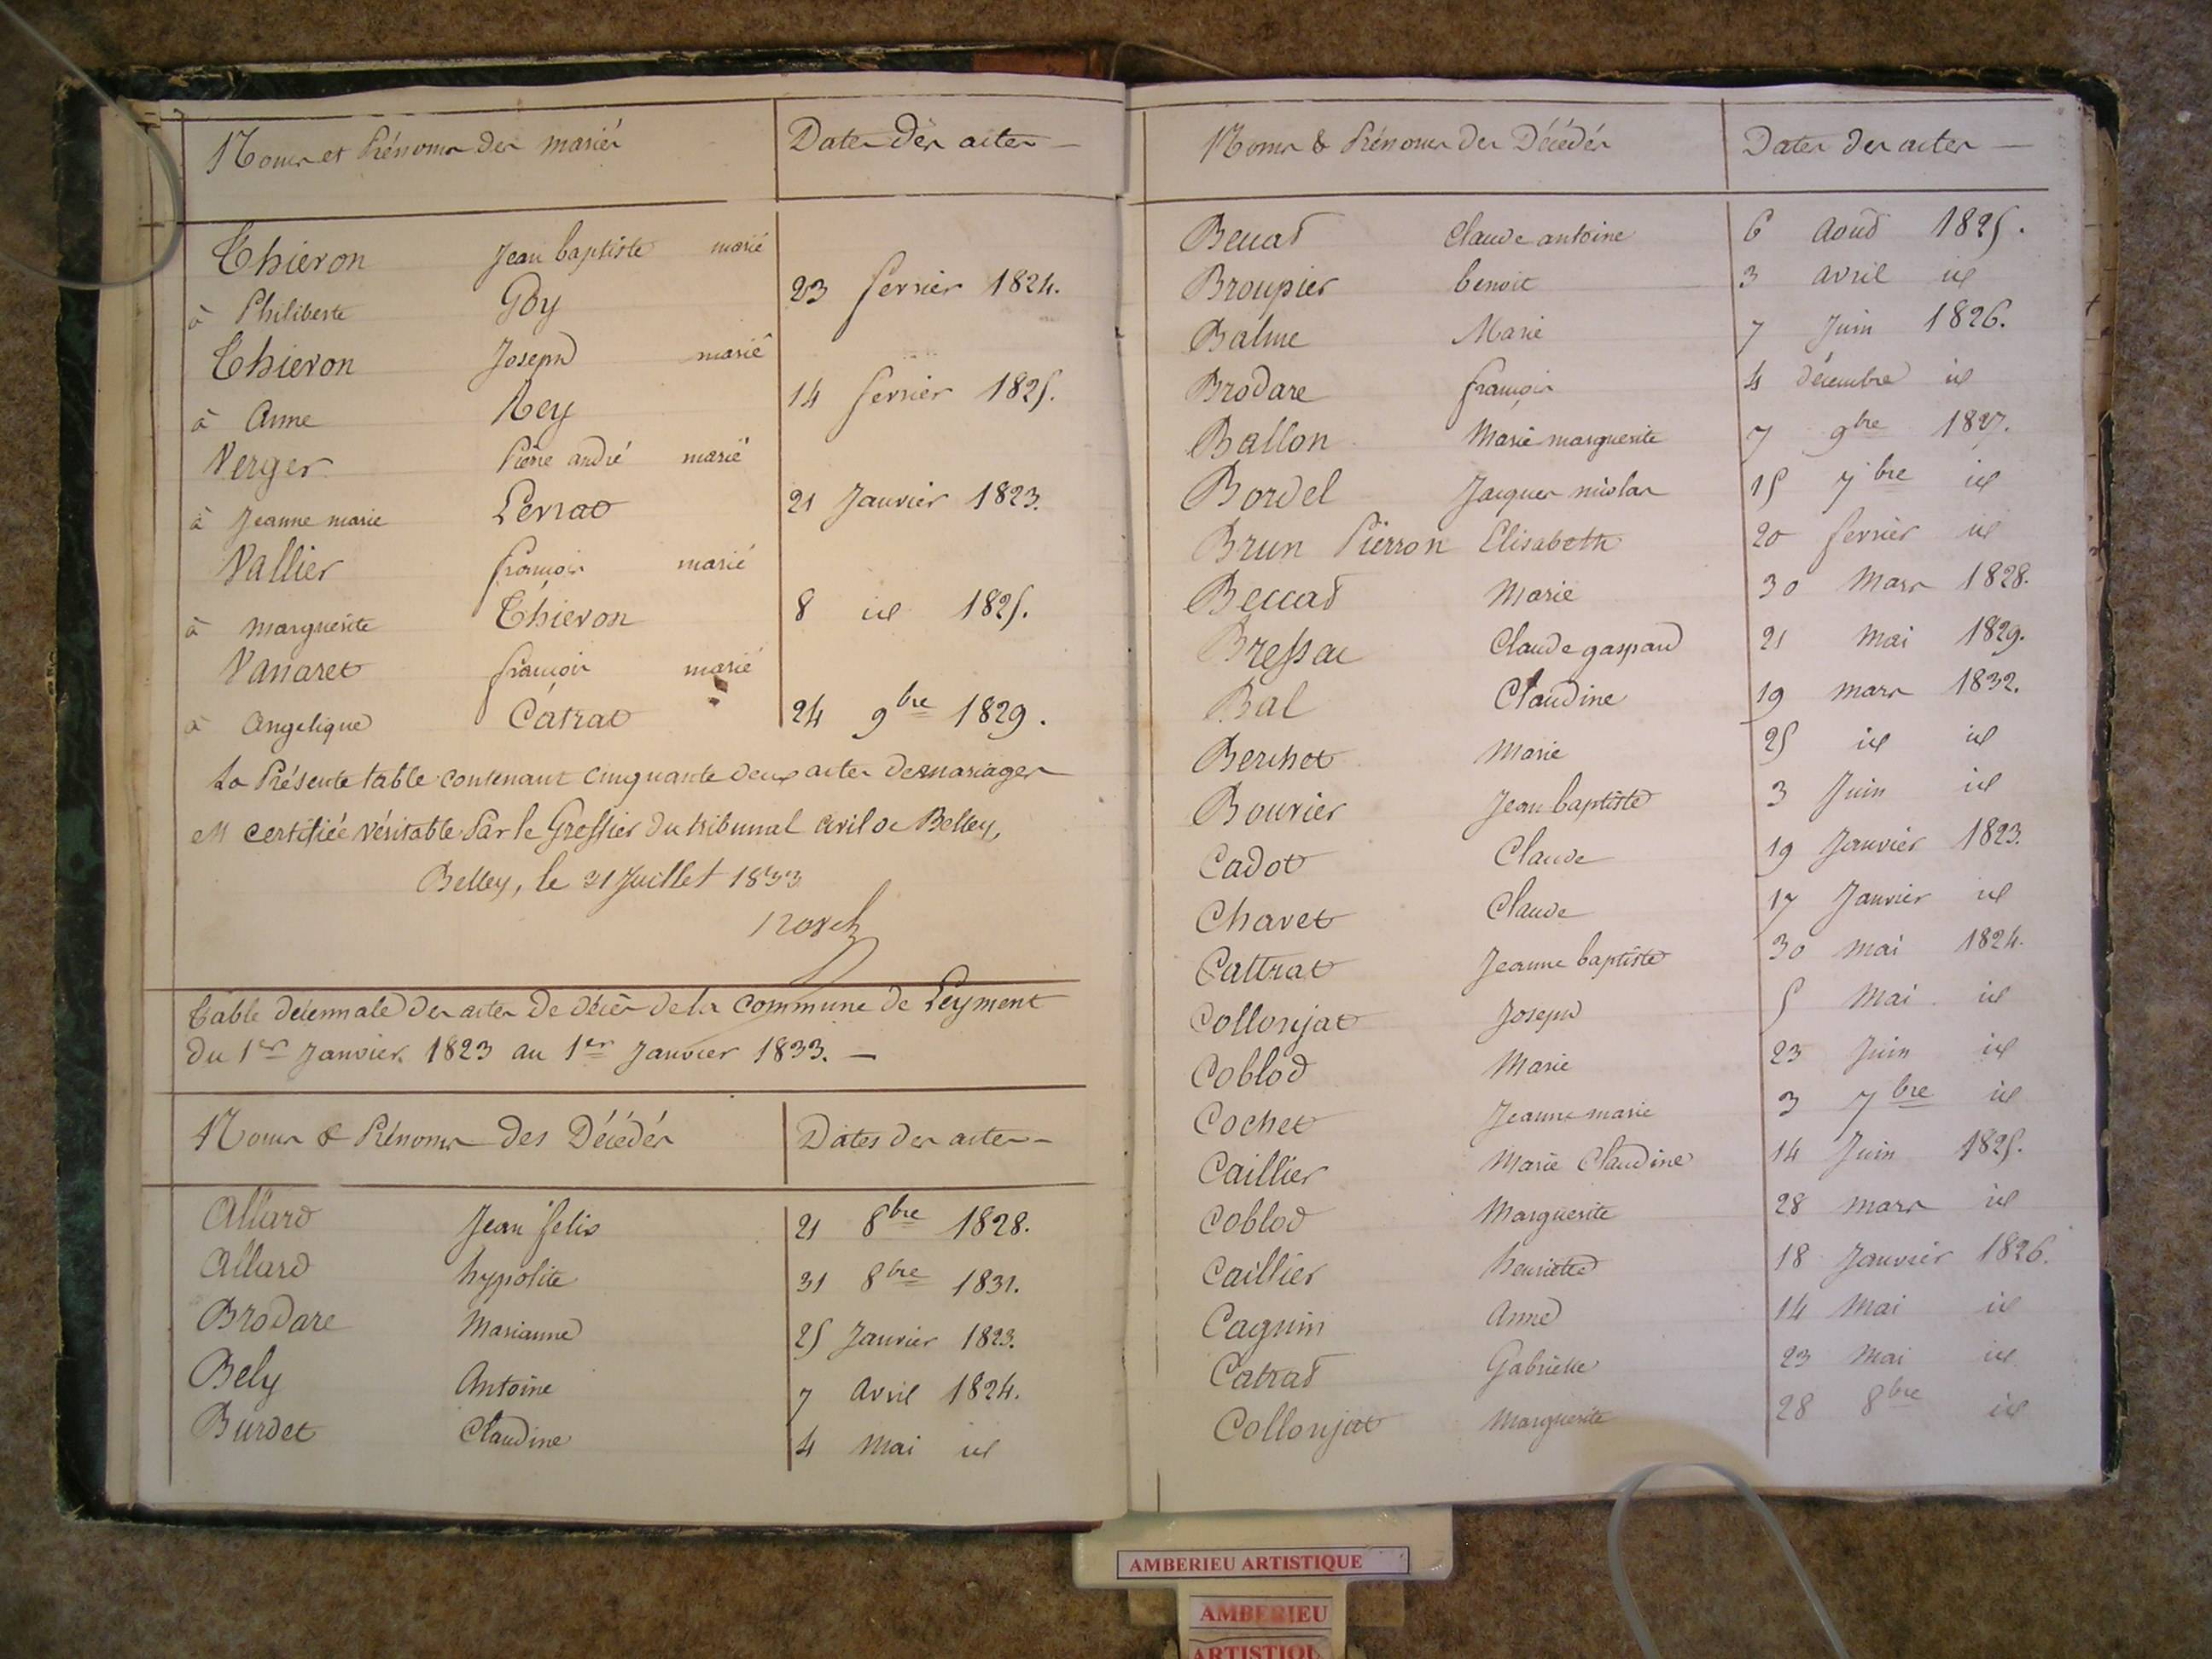 Noms et Prénoms des mariés Dates des actes
Thiévon Jean baptiste marié
à Philiberte Goy 23 fevrier 1824.
Thiévon Joseph marié
à Anne Rey 14 fevrier 1825.
Verger Pierre andré marié
à Jeanne marie Perrat 21 Janvier 1823.
Vallier françois marié
à Marguerite Thiévon 8 id 1825.
Vanaret françois marié
à Angelique Catrat 24 9bre 1829.
La Présente table contenant Cinquante deux actes de mariages
est certifiée véritable Par le Greffier du tribunal Civil de Belley,
Belley, le 21 Juillet 1833
Table décennale des actes de décès de la Commune de Leyment
du 1er Janvier 1823 au 1er Janvier 1833.
Noms & Prénoms des Décédés Dates des actes
Allard Jean felix 21 8bre 1828.
Allard hypolite 31 8bre 1831.
Brodare Marianne 25 Janvier 1823.
Bely Antoine 7 Avril 1824.
Burdet Claudine 4 Mai id
Noms & Prénoms des Décédés Dates des actes
Beccat Claude antoine 6 Aout 1825.
Broupier benoit 3 avril id
Balme Marie 7 Juin 1826.
Brodare françois 4 décembre id
Ballon Marie marguerite 7 9bre 1827.
Bordel Jacques nicolas 15 7bre id
Brun Pierron Elisabeth 20 fevrier id
Beccat Marie 30 Mars 1828.
Bressac Claude gaspard 21 Mai 1829.
Bal Claudine 19 mars 1832.
Berchet Marie 25 id id
Bouvier Jean baptiste 3 Juin id
Cadot Claude 19 Janvier 1823.
Chavet Claude 17 Janvier id
Cattrat Jeanne baptiste 30 Mai 1824.
Collonjat Joseph 5 Mai id
Coblod Marie 23 Juin id
Cochet Jeanne marie 3 7bre id
Caillier Marie Claudine 14 Juin 1825.
Coblod Marguerite 28 mars id
Caillier henriette 18 Janvier 1826.
Cagnin Anne 14 Mai id
Catrat Gabrielle 23 Mai id
Collonjat Marguerite 28 8bre id
AMBERIEU ARTISTIQUE
AMBERIEU
ARTISTIQU